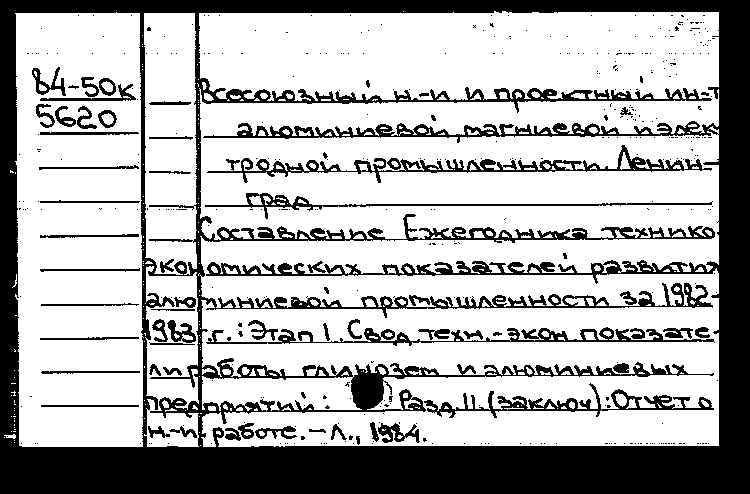 84-50к Всесоюзный н.-и. и проектный ин-т
5620 алюминиевой, магниевой и элек-
тродной промышленности. Ленин-
град.
Составление Ежегодника технико-
экономических показателей развития
алюминиевой промышленности за 1982-
1983 г.г.: Этап I. Свод. техн.-экон. показате-
ли работы глинозем. и алюминиевых
предприятий: Разд. II. (заключ): Отчет о
н.-и. работе. - Л., 1984.